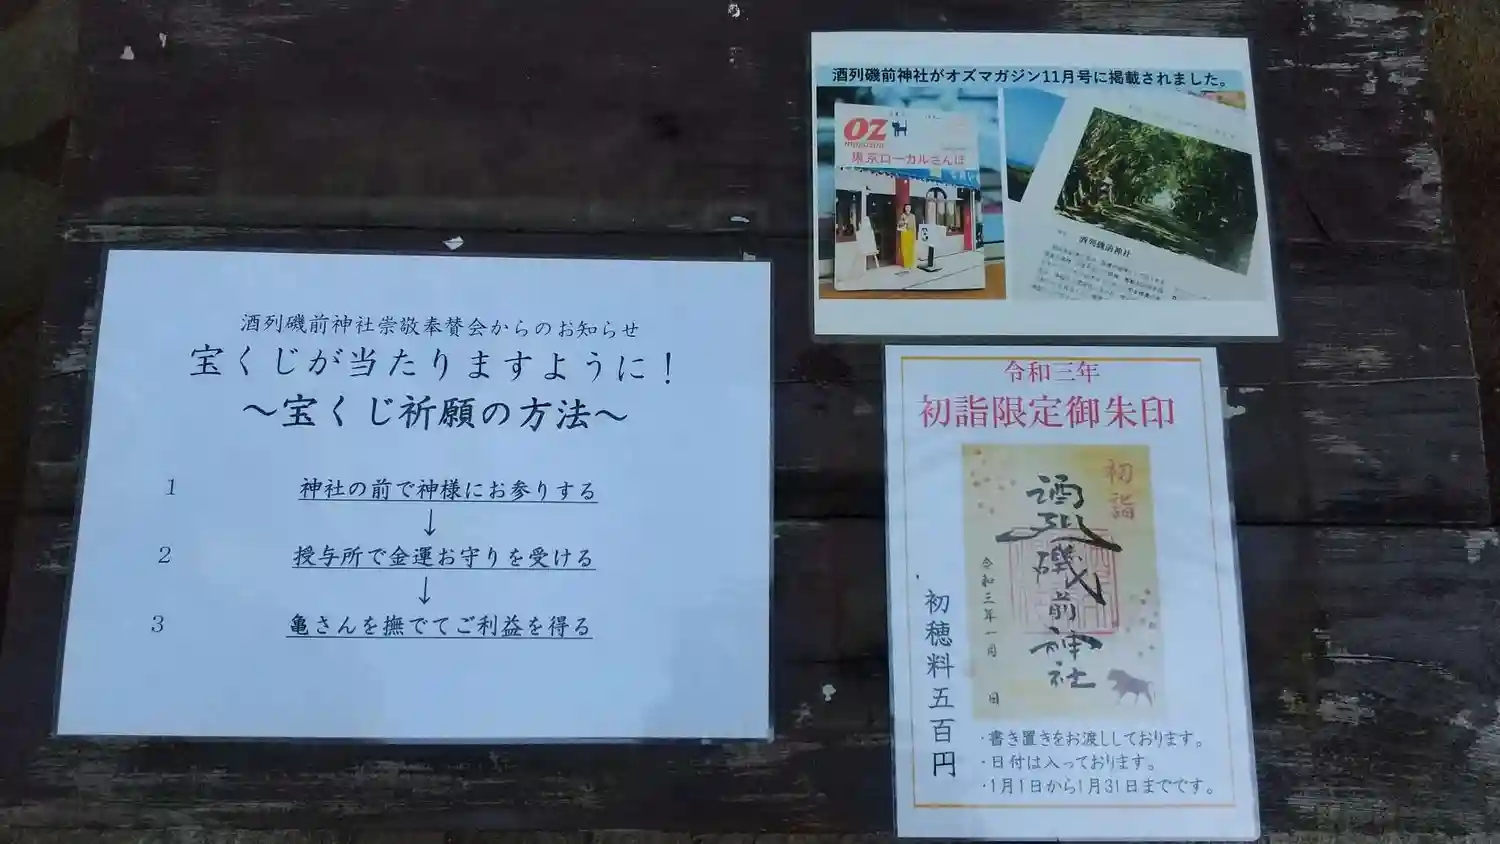 酒列磯前神社崇敬奉賛会からのお知らせ
宝くじが当たりますように！
～宝くじ祈願の方法～
1 神社の前で神様にお参りする
↓
2 授与所で金運お守りを受ける
↓
3 亀さんを撫でてご利益を得る
酒列磯前神社がオズマガジン11月号に掲載されました。
OZ
magazine
東京ローカルさんぽ
酒列磯前神社
令和三年
初詣限定御朱印
初詣
酒列磯前神社
令和三年一月 日
初穂料五百円
・書き置きをお渡ししております。
・日付は入っております。
・1月1日から1月31日までです。